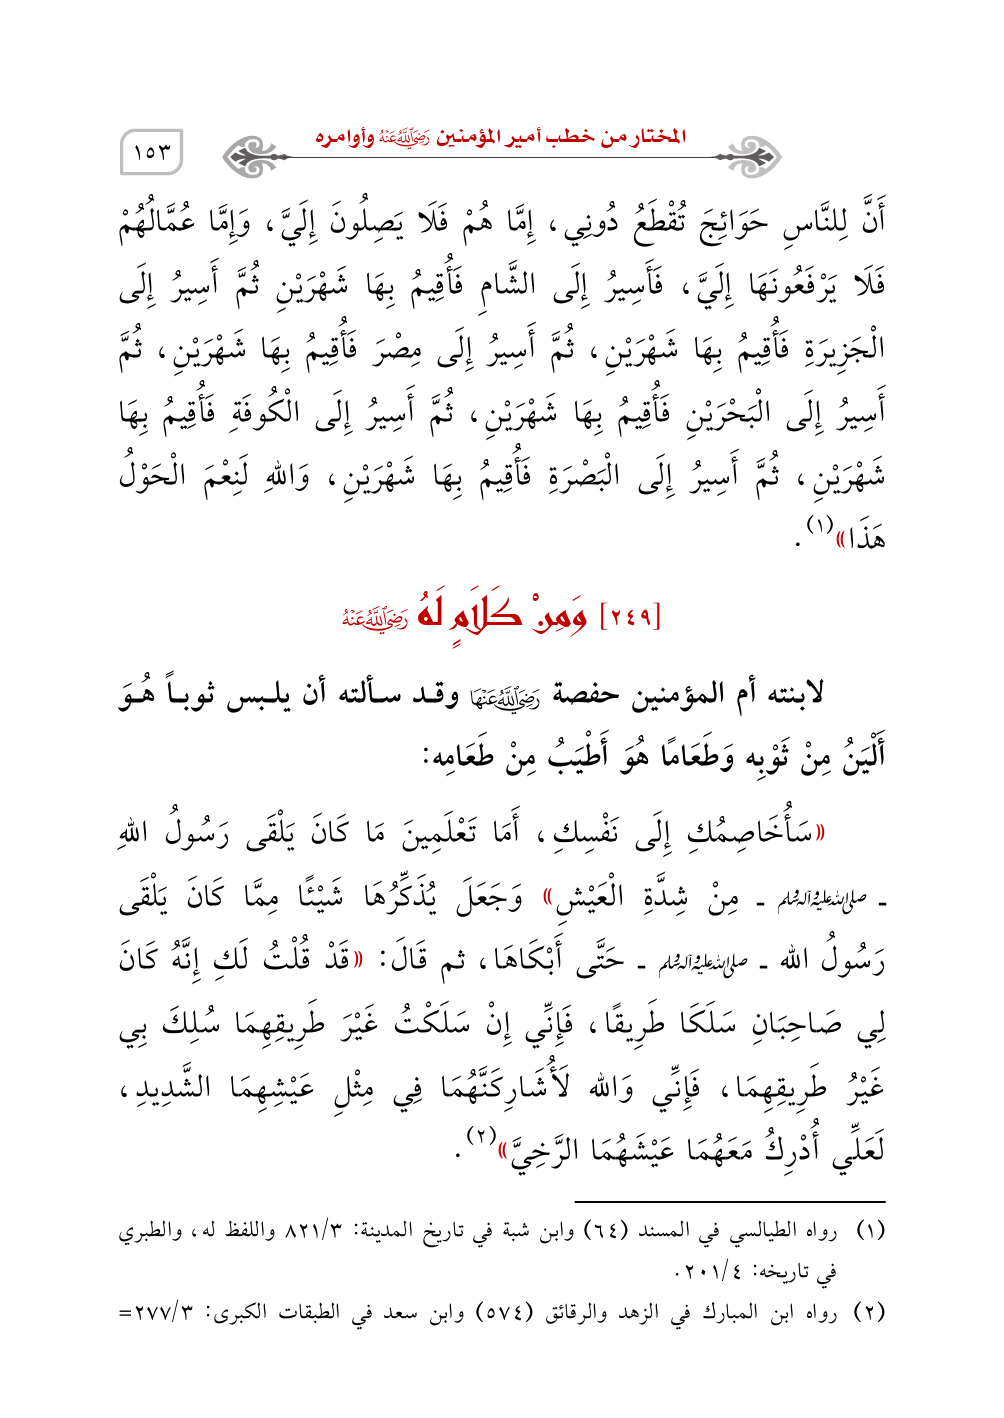 المختار من خطب أمير المؤمنين رَضِيَ اللَّهُ عَنْهُ وأوامره
١٥٣
أَنَّ لِلنَّاسِ حَوَائِجَ تُقْطَعُ دُونِي، إِمَّا هُمْ فَلَا يَصِلُونَ إِلَيَّ، وَإِمَّا عُمَّالُهُمْ
فَلَا يَرْفَعُونَهَا إِلَيَّ، فَأَسِيرُ إِلَى الشَّامِ فَأُقِيمُ بِهَا شَهْرَيْنِ ثُمَّ أَسِيرُ إِلَى
الْجَزِيرَةِ فَأُقِيمُ بِهَا شَهْرَيْنِ، ثُمَّ أَسِيرُ إِلَى مِصْرَ فَأُقِيمُ بِهَا شَهْرَيْنِ، ثُمَّ
أَسِيرُ إِلَى الْبَحْرَيْنِ فَأُقِيمُ بِهَا شَهْرَيْنِ، ثُمَّ أَسِيرُ إِلَى الْكُوفَةِ فَأُقِيمُ بِهَا
شَهْرَيْنِ، ثُمَّ أَسِيرُ إِلَى الْبَصْرَةِ فَأُقِيمُ بِهَا شَهْرَيْنِ، وَاللهِ لَنِعْمَ الْحَوْلُ
هَذَا»(١).
[٢٤٩] وَمِنْ كَلَامٍ لَهُ رَضِيَ اللَّهُ عَنْهُ
لابنته أم المؤمنين حفصة رَضِيَ اللَّهُ عَنْهَا وقد سألته أن يلبس ثوباً هُوَ
أَلْيَنُ مِنْ ثَوْبِه وَطَعَامًا هُوَ أَطْيَبُ مِنْ طَعَامِه:
«سَأُخَاصِمُكِ إِلَى نَفْسِكِ، أَمَا تَعْلَمِينَ مَا كَانَ يَلْقَى رَسُولُ اللهِ
ـ صلى الله عليه وآله وسلم ـ مِنْ شِدَّةِ الْعَيْشِ» وَجَعَلَ يُذَكِّرُهَا شَيْئًا مِمَّا كَانَ يَلْقَى
رَسُولُ الله ـ صلى الله عليه وآله وسلم ـ حَتَّى أَبْكَاهَا، ثم قَالَ: «قَدْ قُلْتُ لَكِ إِنَّهُ كَانَ
لِي صَاحِبَانِ سَلَكَا طَرِيقًا، فَإِنِّي إِنْ سَلَكْتُ غَيْرَ طَرِيقِهِمَا سُلِكَ بِي
غَيْرُ طَرِيقِهِمَا، فَإِنِّي وَالله لَأُشَارِكَنَّهُمَا فِي مِثْلِ عَيْشِهِمَا الشَّدِيدِ،
لَعَلِّي أُدْرِكُ مَعَهُمَا عَيْشَهُمَا الرَّخِيَّ»(٢).
(١) رواه الطيالسي في المسند (٦٤) وابن شبة في تاريخ المدينة: ٨٢١/٣ واللفظ له، والطبري
في تاريخه: ٢٠١/٤.
(٢) رواه ابن المبارك في الزهد والرقائق (٥٧٤) وابن سعد في الطبقات الكبرى: ٢٧٧/٣=